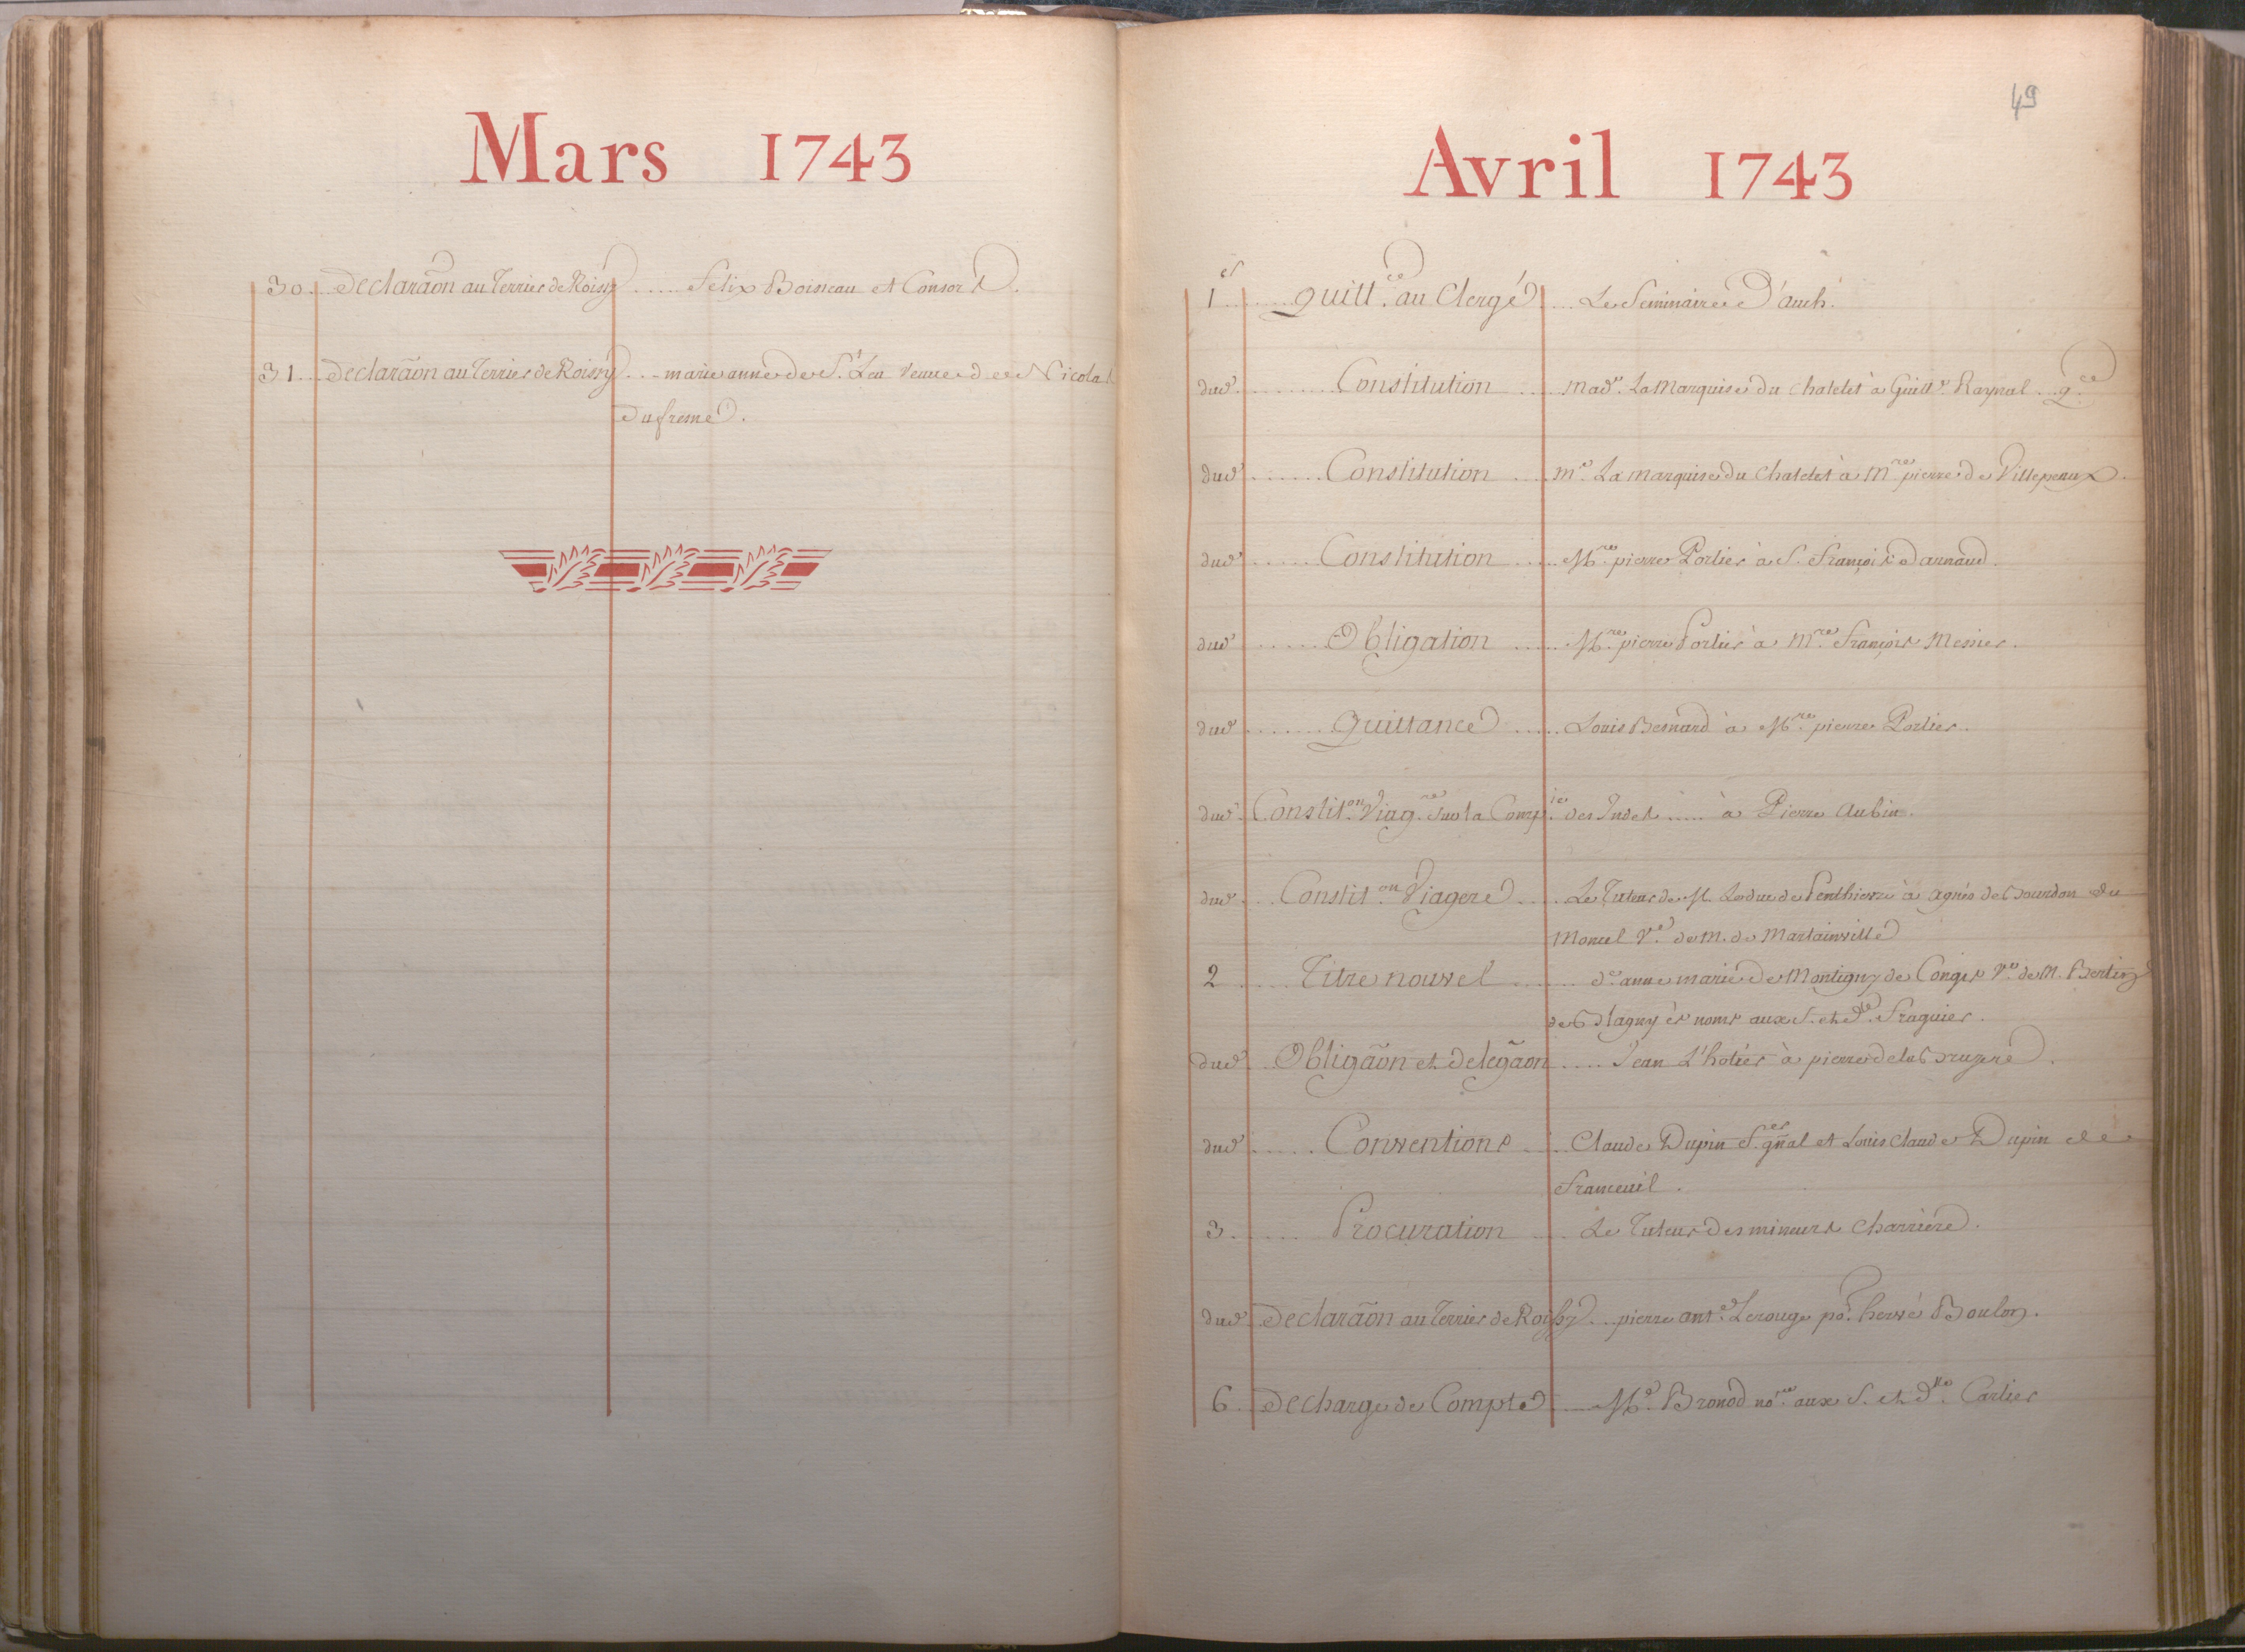 Mars 1743
30. Declaraõn au Terrier de Roissy ..... Felix Boisseau et Consors.
31 ... Declaraõn au Terrier de Roissy .... marie anne de St. Leu veuve de Nicolas
Dufresne.
49
Avril 1743
1er ........ Quittce. au Clergé .... Le Seminaire d'auch.
dud. ........ Constitution .... Made. La Marquise du Chatelet à Guille. Raynal .. qce.
dud. ....... Constitution .... me. La marquise du Chatelet à Mre. pierre de Villepeaux.
dud. ...... Constitution ..... Mre. pierre Portier à S. François Darnaud.
dud. ...... Obligation ..... Mre. pierre Portier à Mre. François Messier.
dud. ........ Quittance ..... Louis Besnard à Mre. pierre Portier.
dud. Constiton. Viagre. sur la Compie. des Indes ..... à Pierre Aubin.
dud. ... Constiton. Viagere ..... Le Tuteur de M. Le duc de Penthievre à agnés de Bourdon du
Moncel Ve. de M. de Martainville
2 ..... Titre nouvel ....... de. anne marie de Montigny de Conges Ve. de M. Bertin
de Blagny ès noms aux S. et dlle. Fraguier.
dud. .. Obligaõn et delegaõn ..... Jean L'hotier à pierre de la Bruyere.
dud. ..... Conventions ..... Claude Dupin fer. gñal et Louis Claude Dupin de
Francueil.
3. ..... Procuration .... Le Tuteur des mineurs Charriere.
dud. Declaraõn au Terrier de Roissy ... pierre ante. Lerouge po. hervé Boulon.
6. Decharge de Compte .... Me. Bronod nore. aux S. et dlle. Cartier